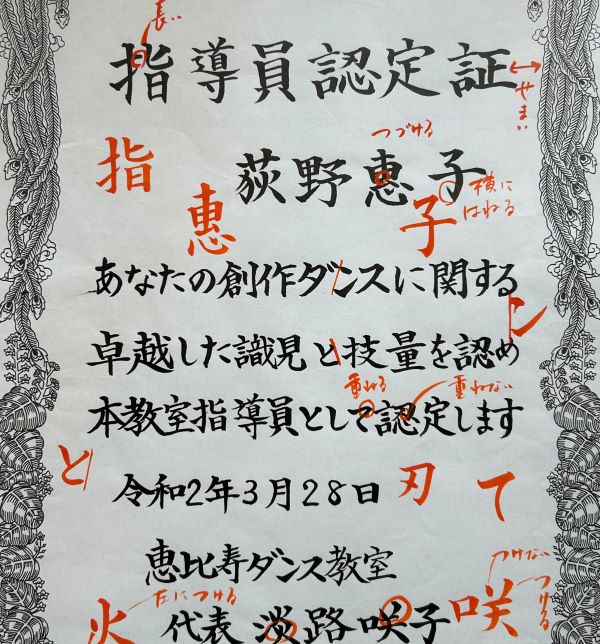 長い
指導員認定証
せまい
つづける
指
荻野恵子
横に
はねる
恵
子
あなたの創作ダンスに関する
ン
卓越した識見と技量を認め
重ねる
重ねない
本教室指導員として認定します
と
令和2年3月28日
刃
て
恵比寿ダンス教室
つけない
つける
左につける
火
代表 淡路咲子
咲